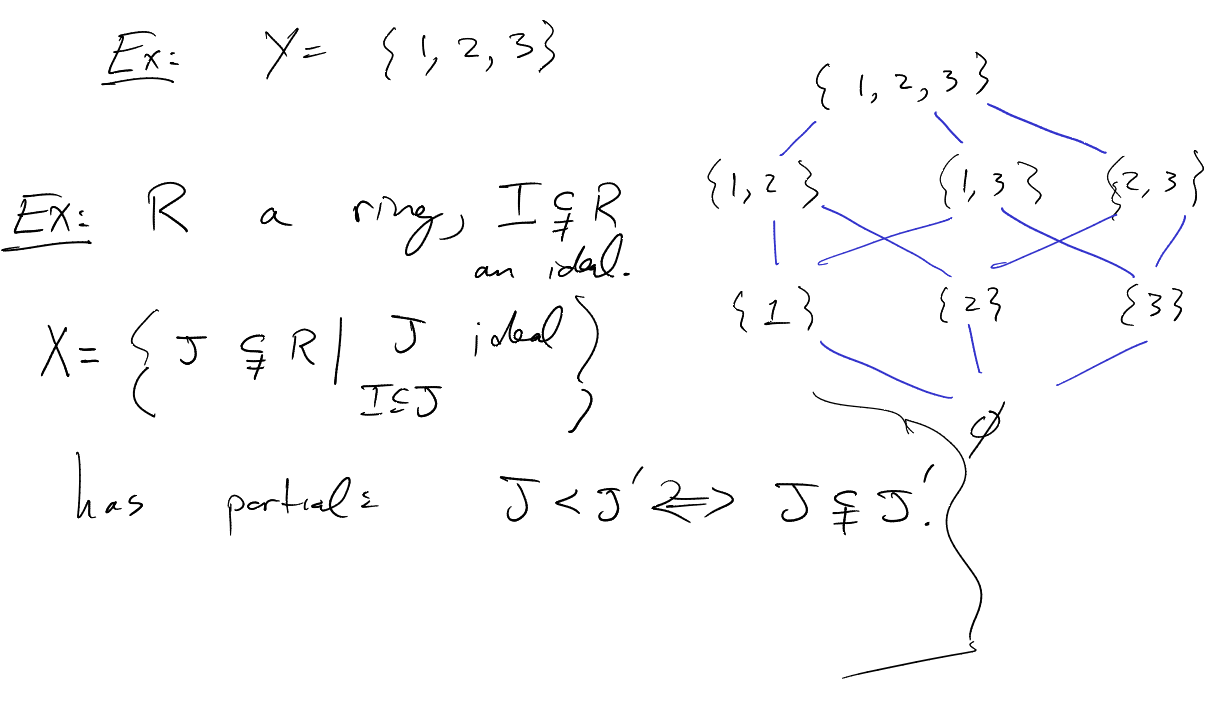 Ex: Y = {1, 2, 3}
{1, 2, 3}
{1, 2} {1, 3} {2, 3}
{1} {2} {3}
∅
Ex: R a ring, I ⊊ R
an ideal.
X = { J ⊊ R | J ideal }
I ⊆ J
has partial J < J' ⟺ J ⊊ J'.